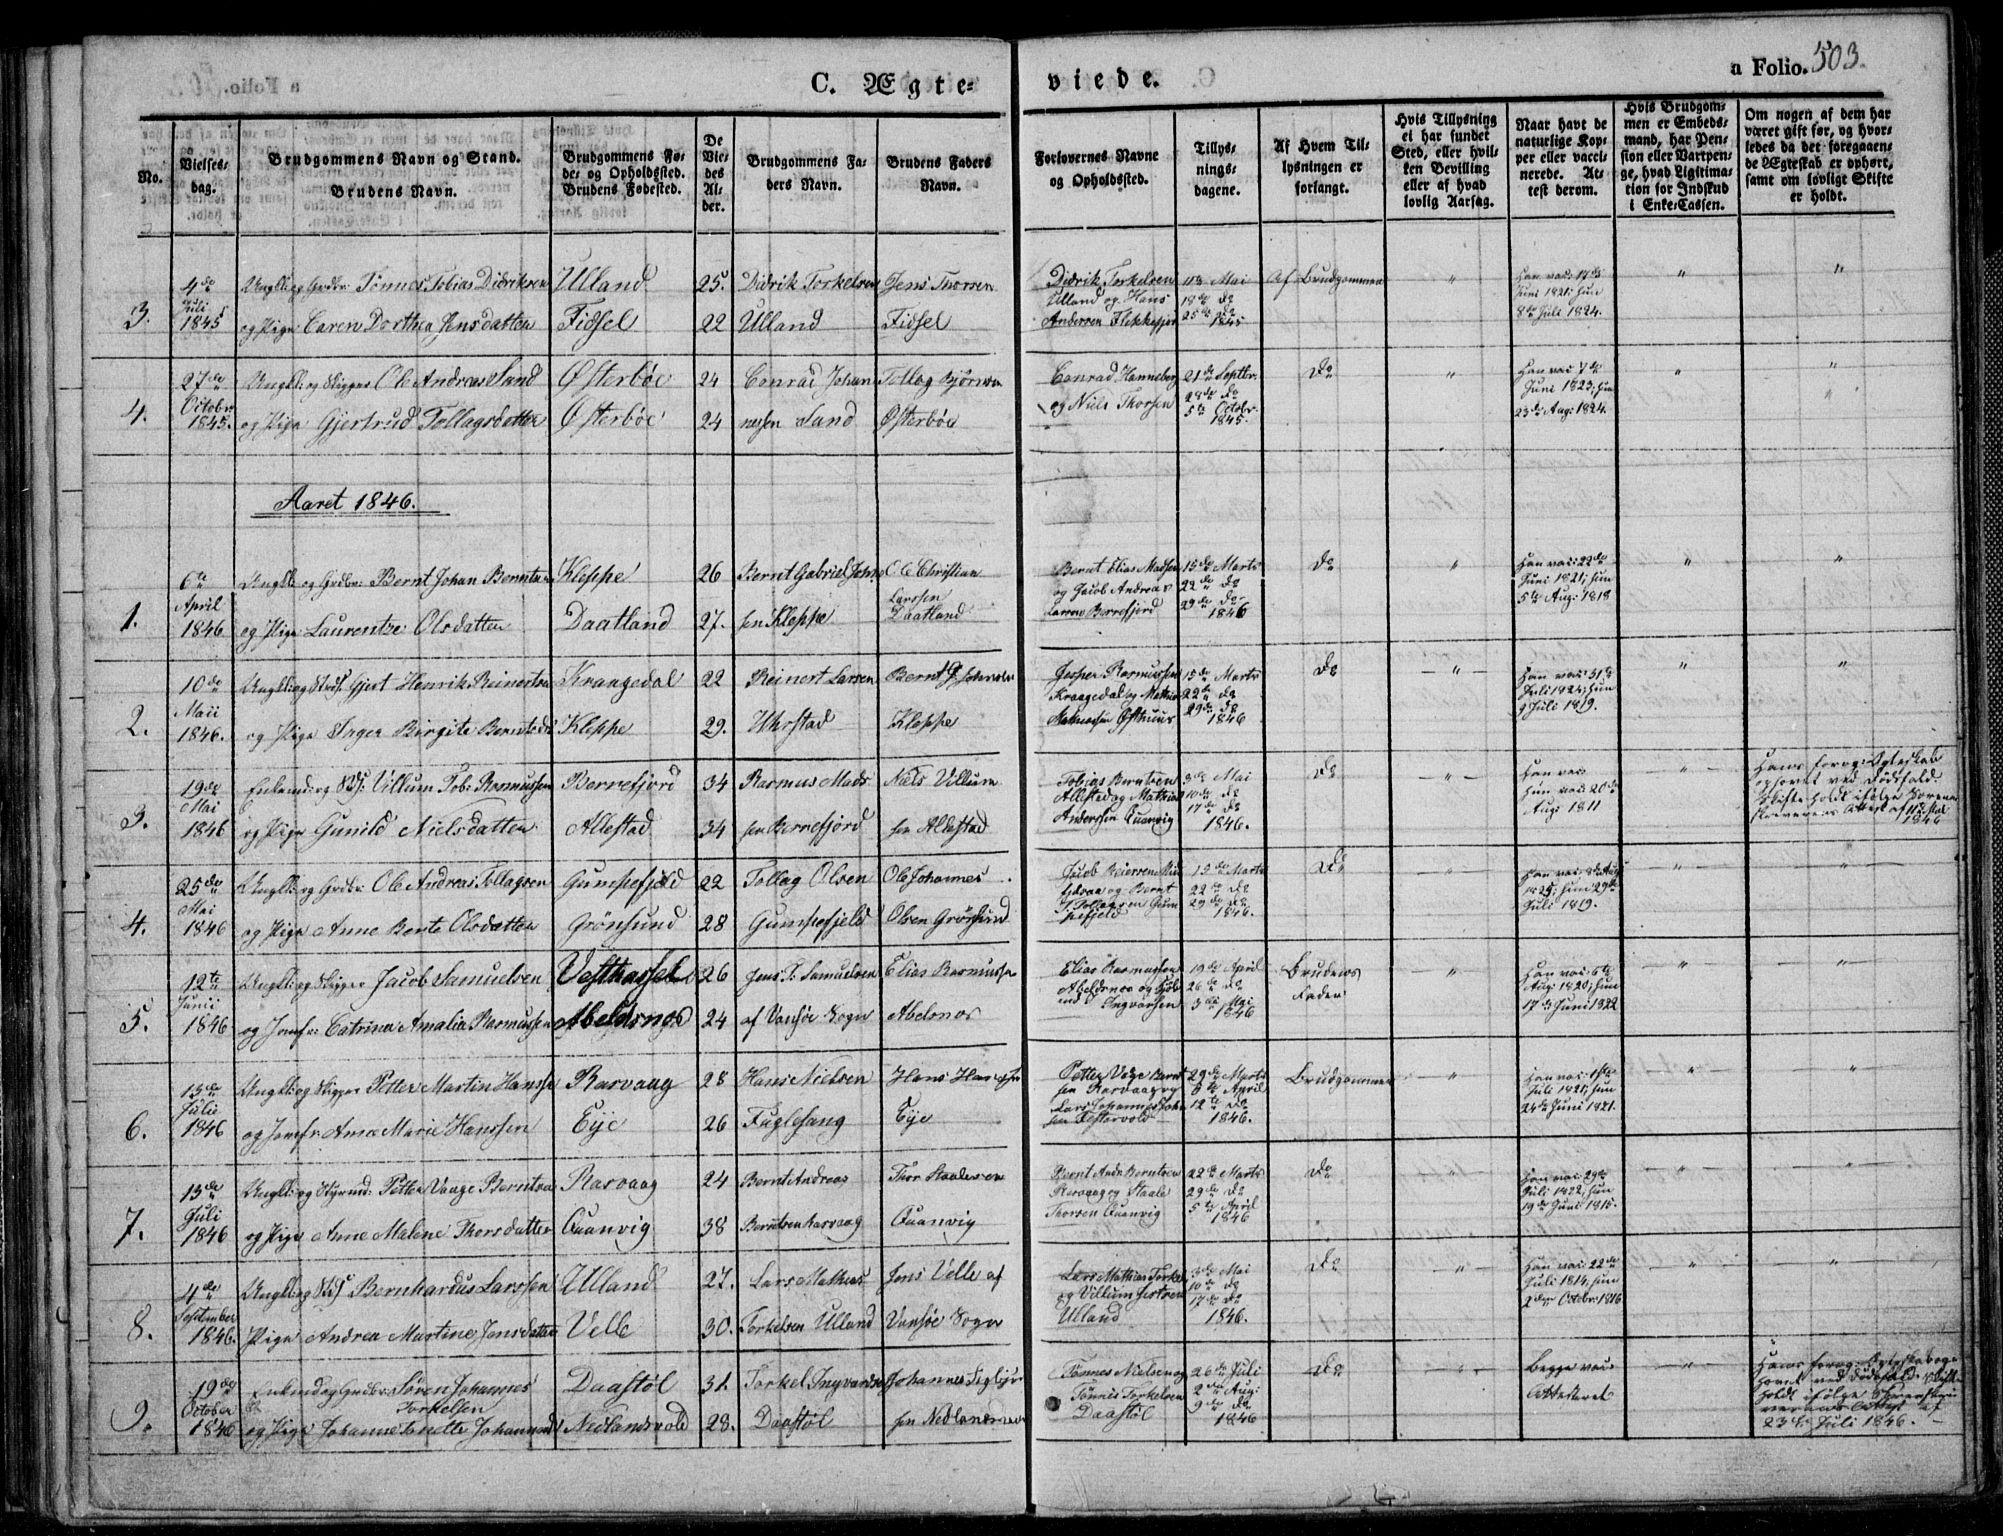 C. Ægte-
viede.
a Folio. 503.
No.
Vielses-
dag.
Brudgommens Navn og Stand.
Brudens Navn.
Brudgommens Fø-
de- og Opholdssted.
Brudens Fødested.
De
Vie-
des
Al-
der.
Brudgommens Fa-
ders Navn.
Brudens Faders
Navn.
Forlovernes Navne
og Opholdssted.
Tillys-
nings-
dagene.
Af Hvem Til-
lysningen er
forlangt.
Hvis Tillysning
ei har fundet
Sted, eller hvil-
ken Bevilling
eller af hvad
lovlig Aarsag.
Naar havt de
naturlige Kop-
per eller vacci-
nerede. At-
test derom.
Hvis Brudgom-
men er Embeds-
mand, har Pen-
sion eller Vartpen-
ge, hvad Ligitima-
tion for Indskud
i Enke-Cassen.
Om nogen af dem har
været gift før, og hvor-
ledes da det foregaaen-
de Ægteskab er ophørt,
samt om lovligt Skifte
er holdt.
3.
4de
Juli
1845
Ungkl: og Grdbr: Tønnes Tobias Didriksen
og Pige Caren Dorthea Jensdatter
Ulland
Fidsel
25.
22
Didrik Torkelsen
Ulland
Jens Thorsen
Fidsel
Didrik Torkelsen
Ulland og Hans
Andersen Flikkefjer
11te Mai
18de do
25de do
1845
Af Brudgommen
"
Han vac: 17de
Juni 1821; hun
8de Juli 1824.
"
"
4.
27de
Octobr
1845.
Ungkl: og Skipper Ole Andreas Sand
og Pige Gjertrud Tollagsdatter
Østerbøe
Østerbøe
24
24
Conrad Johan
nesen Sand
Tollag Bjørnsen
Østerbøe
Conrad Hanneberg
og Niels Thorsen
21de Septbr.
28de do
5te Octobr.
1845.
Do
"
Han vac: 7de
Juni 1823; hun
23de Aug: 1824.
"
"
Aaret 1846.
1.
6te
April
1846
Ungkl: og Grdbr: Bernt Johan Berntsen
og Pige Laurentze Olsdatter
Kleppe
Daatland
26
27.
Bernt Gabriel Jen
sen Kleppe
Ole Christian
Larssen
Daatland
Bernt Elias Madsen
og Jacob Andreas
Larsen Berrefjord
15de Marts
22de do
29de do
1846
Do
"
Han vac: 22de
Juni 1821; hun
5te Aug: 1818
"
"
2.
10de
Maii
1846.
Gjert Henrik Reinertsen
og Pige Inger Birgite Berntsdr
Kraagedal
Kleppe
22
29.
Reinert Larsen
Uhrstad
Kleppe
Jesper Rasmussen
Kraagedal og Mathias
Mathiassen Østhuus
15de Marts
22de do
29de do
1846
Do
"
Han vac: 31te
Juli 1824; hun
9 Juli 1819.
"
"
3.
19de
Mai
1846
Enkemd: og Villum Tob: Rasmussen
og Pige Gunild Nielsdatter
Berrefjord
Allestad
34
34
Rasmus Mads
sen Berrefjord
Niels Villum
sen Allestad
Tobias Berntsen
Allestad og Mathias
Anderssen Quanvig
3de Mai
10de do
17de do
1846.
Do
"
Han vac:
Hun vac: 20de
Aug: 1811
"
Hans forrige Egteskab
ophørt ved Dødsfald.
Skifte holdt ifølge Soren-
skriverens Attest af
1846
4.
25de
Mai
1846
Ungkl: og Grdbr: Ole Andreas Tollagsen
og Pige Anne Berte Olsdatter
Gumpefjeld
Grønsund
22
28
Tollag Olsen
Gumpefjeld
Ole Johannes
Olsen Grønsund
Jacob
og Bernt
Tollagsen Gum
pefjeld
15de Marts
22de do
29de do
1846.
Do
"
Han vac: Aug:
1825; hun 29de
Juli 1819.
"
"
5.
12te
Junii
1846
Ungkl: og Skipper Jacob Samuelsen
og Jomfr: Catrina Amalia Rasmussen
Vesthassel
Abeldsnæs
26
24
Jens P. Samuelsen
af Vansøe Sogn
Elias Rasmussen
Abelsnæs
Elias Rasmussen
Abeldsnæs og
Ingvarsen
19de April
26de do
3de Mai
1846
Brudens
Fader
"
Han vac: 5te
Aug: 1820; hun
17de Juni 1822
"
"
6.
13de
Julii
1846
Ungkl: og Skipper Petter Martin Hanssen
og Jomfr: Anne Marie Hanssen
Rasvaag
Eye
28
26
Hans Nielsen
Fuglesang
Hans Hanssen
Eye
Petter Vaage Bernt
sen Rasvaag og
Lars Johannes John
sen Festervold
29de Marts
5te April
12te do
1846.
Brudgommen
"
Han vac: 1ste
Juli 1821; hun
24de Juni 1821.
"
"
7.
13de
Juli
1846
Ungkl: og Styrmd: Petter Vaage Berntsen
og Pige Anne Malene Thorsdatter
Rasvaag
Quanvig
24
38
Bernt Andreas
Berntsen Rasvaag
Thor Staalesen
Quanvig
Bernt Ands Berntsen
Rasvaag og Staale
Thorsen Quanvig
22de Marts
29de do
5te April
1846
Do
"
Han vac: 29de
Juli 1822; hun
19de Juni 1815.
"
"
8.
4de
September
1846.
Bernhardus Larssen
Pige Andrea Martine Jensdatter
Ulland
Velle
27.
30.
Lars Mathias
Torkelsen Ulland
Jens Velle af
Vansøe Sogn
Lars Mathias Torkel
og Villum
Ulland
3de Mai
10de do
17de do
1846.
Do
"
Han vac: 22de
Juli 1819, hun
2den Octobr: 1816
"
"
9.
19de
October
1846
Enkemd: og Grdbr: Søren Johannes
Torkelsen
og Pige Johanne Tonette Johannesd:
Daastøl
Nedlandsvold
31.
28.
Torkel Ingvardsen
Daastøl
Johannes Sigbjør
sen Nedlandsvold
Tønnes Nielsen og
Tønnes Torkelsen
Daastøl
26de Juli
2den Aug:
9de do
1846
Do
"
Begge vac:
Attesteret
"
Hans forrige Egteskab op-
hørt ved Dødsfald. Skifte
holdt ifølge Sorenskri
verens Attest af
23de Juli 1846.